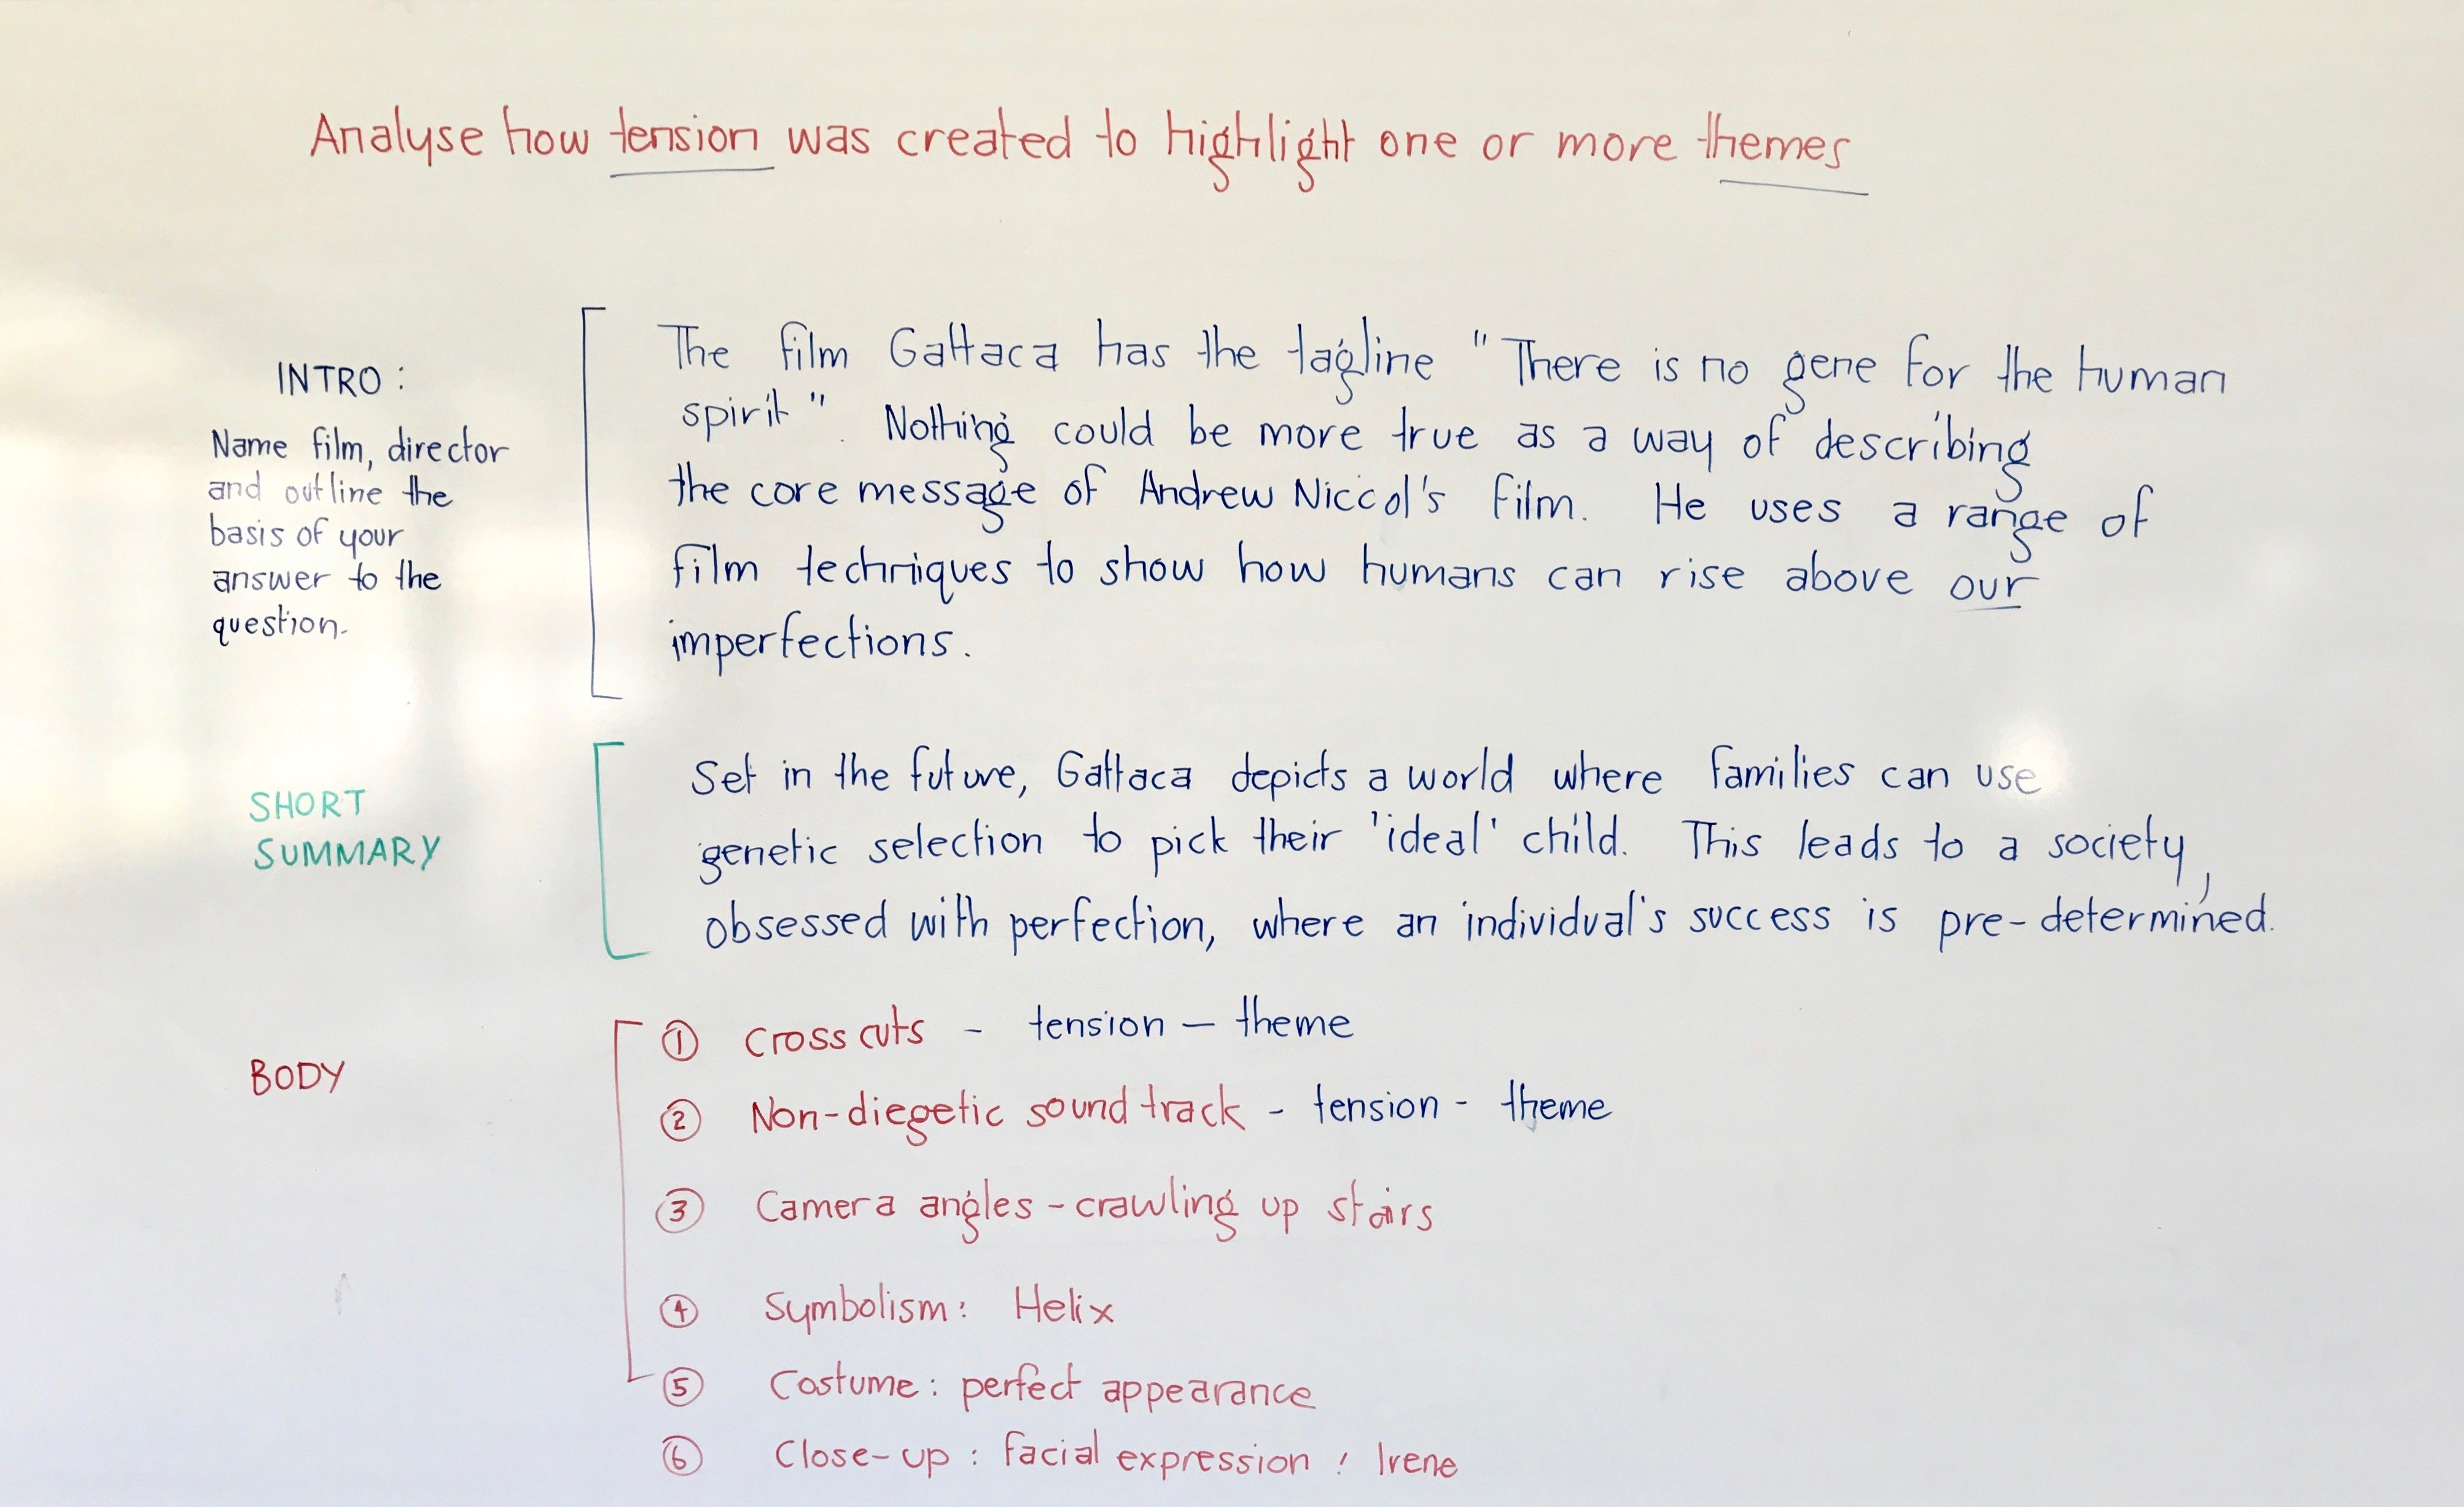 Analyse how tension was created to highlight one or more themes
INTRO:
Name film, director
and outline the
basis of your
answer to the
question.
The film Gattaca has the tagline "There is no gene for the human
spirit". Nothing could be more true as a way of describing
the core message of Andrew Niccol's film. He uses a range of
film techniques to show how humans can rise above our
imperfections.
SHORT
SUMMARY
Set in the future, Gattaca depicts a world where families can use
genetic selection to pick their 'ideal' child. This leads to a society,
obsessed with perfection, where an individual's success is pre-determined.
BODY
① Cross cuts - tension - theme
② Non-diegetic sound track - tension - theme
③ Camera angles - crawling up stairs
④ Symbolism: Helix
⑤ Costume: perfect appearance
⑥ Close-up: facial expression: Irene